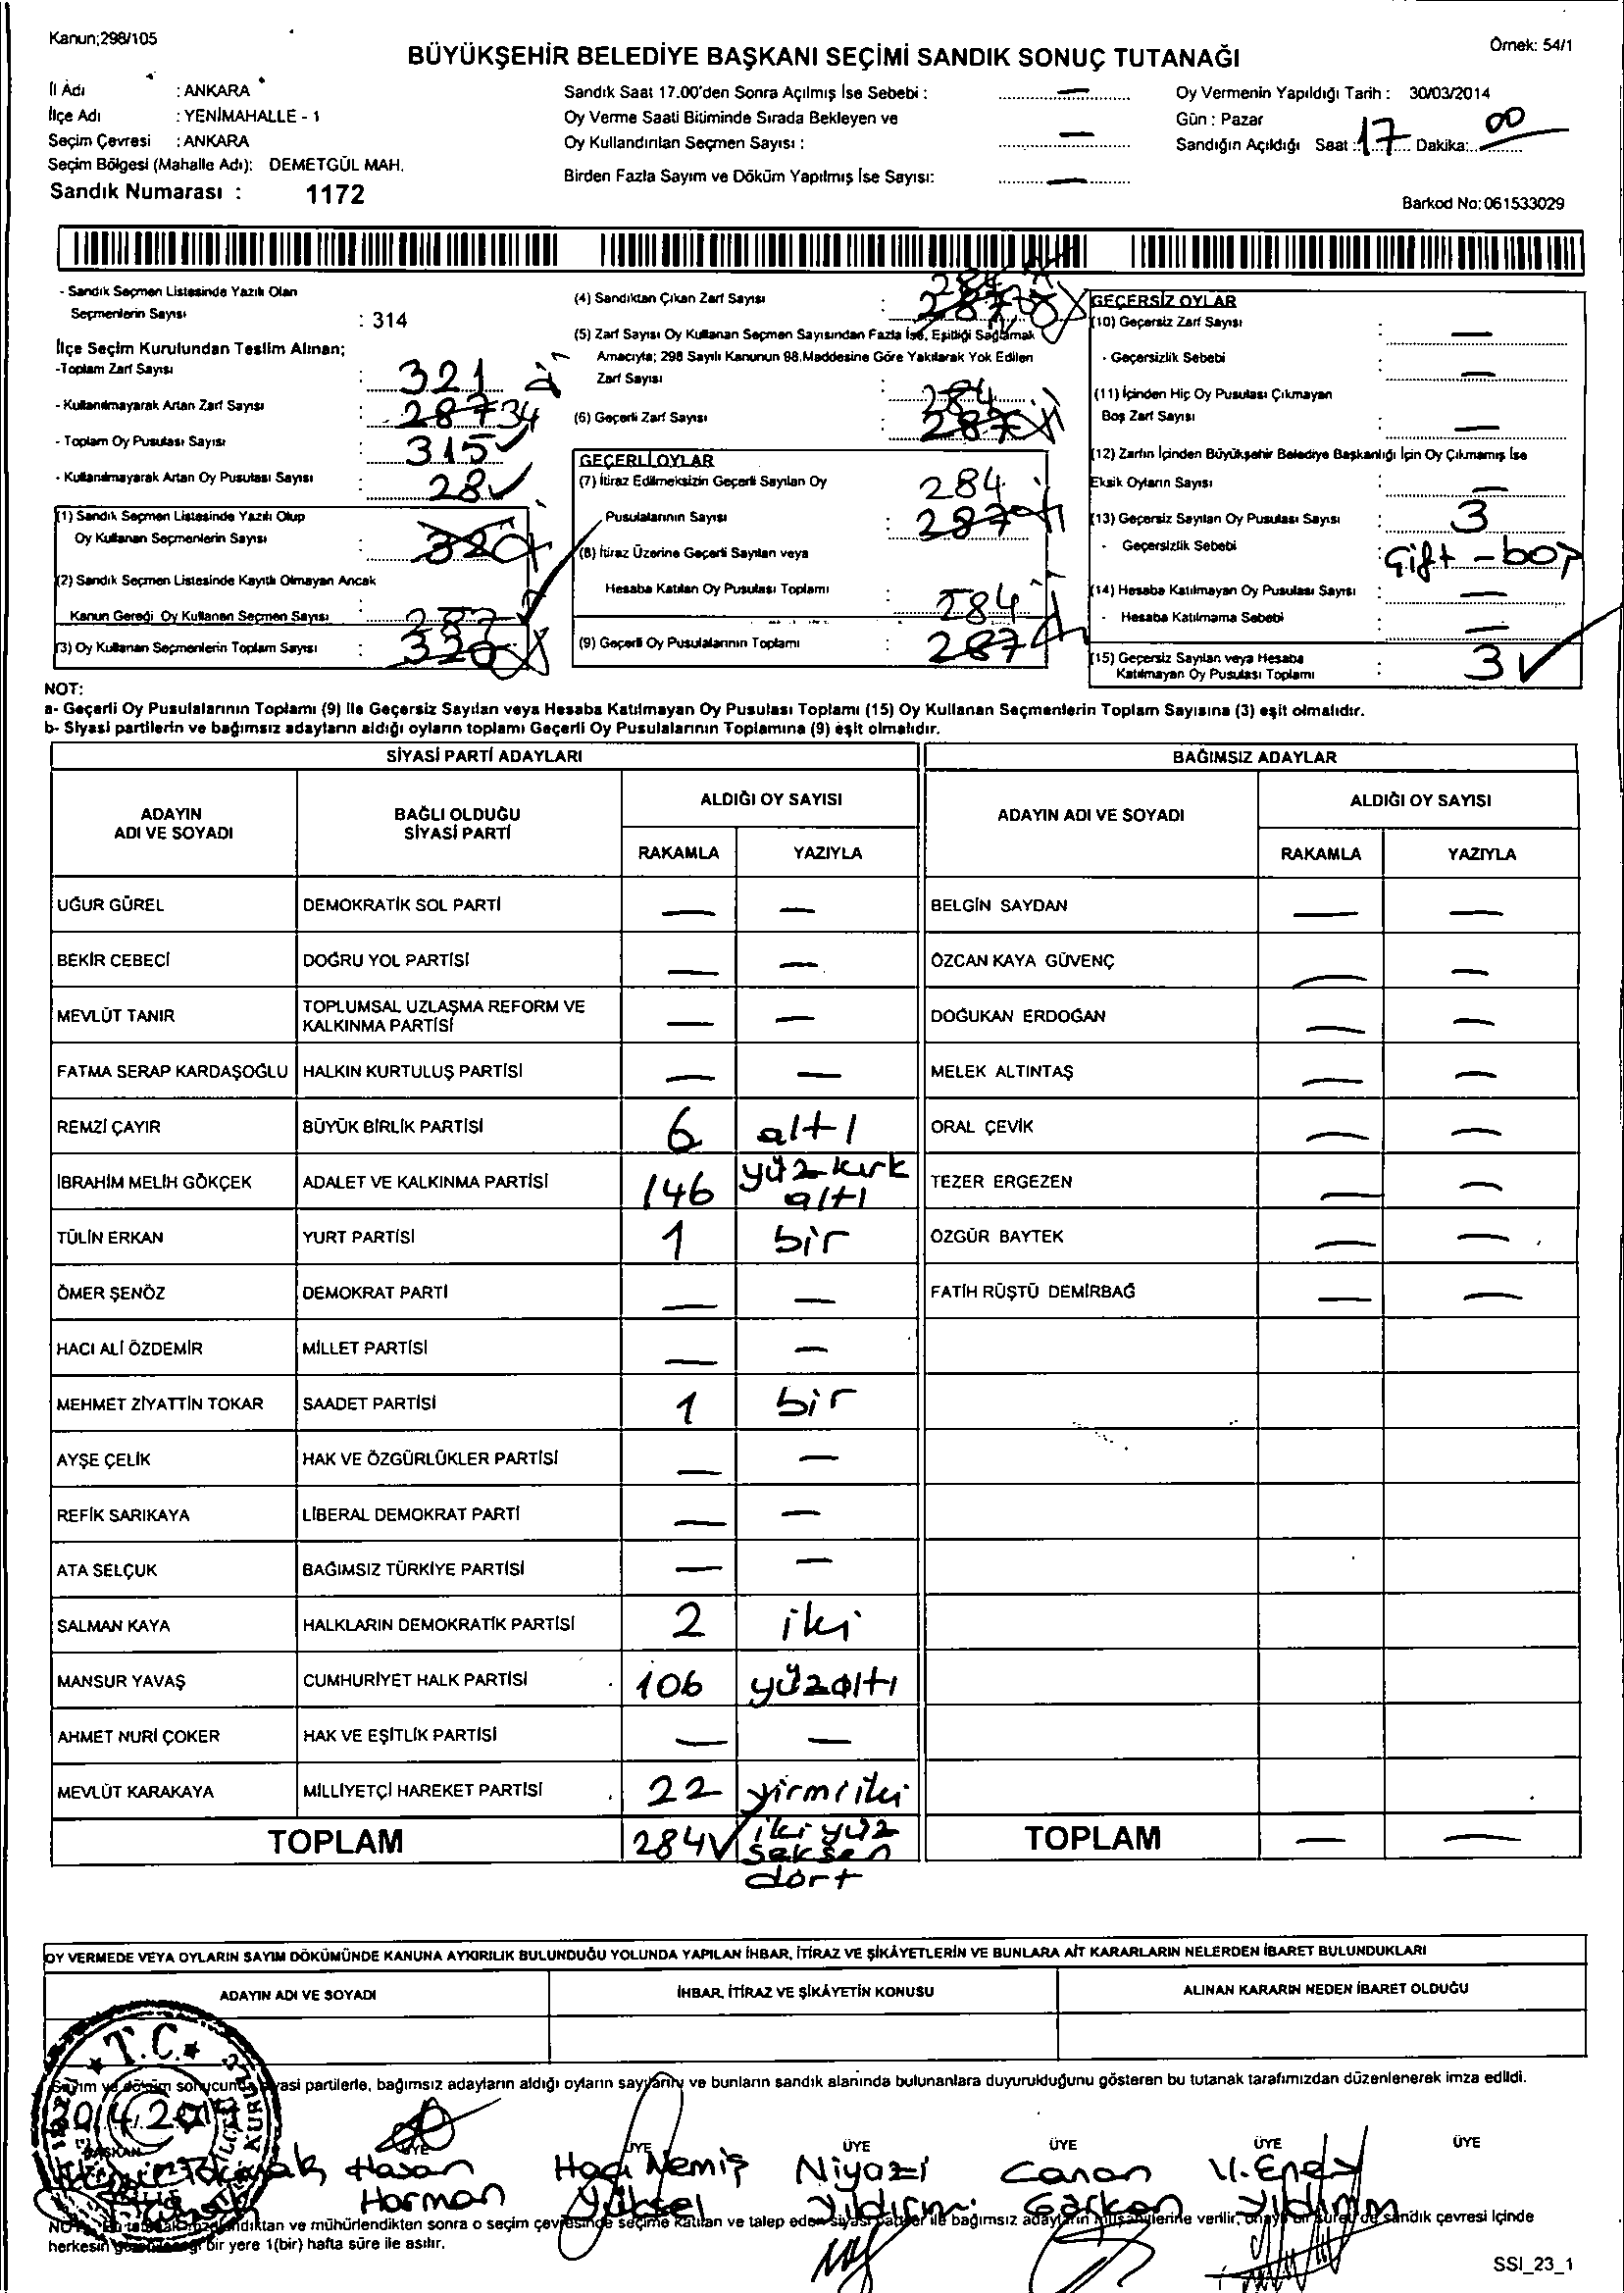 Kanun;298/105
Örnek: 54/1
BÜYÜKŞEHİR BELEDİYE BAŞKANI SEÇİMİ SANDIK SONUÇ TUTANAĞI
İl Adı : ANKARA
İlçe Adı : YENİMAHALLE - 1
Seçim Çevresi : ANKARA
Seçim Bölgesi (Mahalle Adı): DEMETGÜL MAH.
Sandık Numarası : 1172
Sandık Saat 17.00'den Sonra Açılmış İse Sebebi : —
Oy Verme Saati Bitiminde Sırada Bekleyen ve
Oy Kullandırılan Seçmen Sayısı : —
Birden Fazla Sayım ve Döküm Yapılmış İse Sayısı: —
Oy Vermenin Yapıldığı Tarih : 30/03/2014
Gün : Pazar
Sandığın Açıldığı Saat : 17 Dakika: 00
Barkod No: 061533029
- Sandık Seçmen Listesinde Yazılı Olan
Seçmenlerin Sayısı : 314
İlçe Seçim Kurulundan Teslim Alınan;
-Toplam Zarf Sayısı : 321
- Kullanılmayarak Artan Zarf Sayısı : 287 34
- Toplam Oy Pusulası Sayısı : 315
- Kullanılmayarak Artan Oy Pusulası Sayısı : 28
(1) Sandık Seçmen Listesinde Yazılı Olup
Oy Kullanan Seçmenlerin Sayısı : 320
(2) Sandık Seçmen Listesinde Kayıtlı Olmayan Ancak
Kanun Gereği Oy Kullanan Seçmen Sayısı :
(3) Oy Kullanan Seçmenlerin Toplam Sayısı : 287 320
(4) Sandıktan Çıkan Zarf Sayısı : 284 287
(5) Zarf Sayısı Oy Kullanan Seçmen Sayısından Fazla İse, Eşitliği Sağlamak
Amacıyla; 298 Sayılı Kanunun 98.Maddesine Göre Yakılarak Yok Edilen
Zarf Sayısı :
(6) Geçerli Zarf Sayısı : 284 287
GEÇERLİ OYLAR
(7) İtiraz Edilmeksizin Geçerli Sayılan Oy
Pusulalarının Sayısı : 284 287
(8) İtiraz Üzerine Geçerli Sayılan veya
Hesaba Katılan Oy Pusulası Toplamı :
(9) Geçerli Oy Pusulalarının Toplamı : 284 287
GEÇERSİZ OYLAR
(10) Geçersiz Zarf Sayısı : —
- Geçersizlik Sebebi : —
(11) İçinden Hiç Oy Pusulası Çıkmayan
Boş Zarf Sayısı : —
(12) Zarfın İçinden Büyükşehir Belediye Başkanlığı İçin Oy Çıkmamış İse
Eksik Oyların Sayısı : —
(13) Geçersiz Sayılan Oy Pusulası Sayısı : 3
- Geçersizlik Sebebi : Çift - boş
(14) Hesaba Katılmayan Oy Pusulası Sayısı : —
- Hesaba Katılmama Sebebi : —
(15) Geçersiz Sayılan veya Hesaba
Katılmayan Oy Pusulası Toplamı : 3
NOT:
a- Geçerli Oy Pusulalarının Toplamı (9) ile Geçersiz Sayılan veya Hesaba Katılmayan Oy Pusulası Toplamı (15) Oy Kullanan Seçmenlerin Toplam Sayısına (3) eşit olmalıdır.
b- Siyasi partilerin ve bağımsız adayların aldığı oyların toplamı Geçerli Oy Pusulalarının Toplamına (9) eşit olmalıdır.
SİYASİ PARTİ ADAYLARI
BAĞIMSIZ ADAYLAR
ADAYIN
ADI VE SOYADI
BAĞLI OLDUĞU
SİYASİ PARTİ
ALDIĞI OY SAYISI
RAKAMLA YAZIYLA
ADAYIN ADI VE SOYADI
ALDIĞI OY SAYISI
RAKAMLA YAZIYLA
UĞUR GÜREL DEMOKRATİK SOL PARTİ — — BELGİN SAYDAN — —
BEKİR CEBECİ DOĞRU YOL PARTİSİ — — ÖZCAN KAYA GÜVENÇ — —
MEVLÜT TANIR TOPLUMSAL UZLAŞMA REFORM VE
KALKINMA PARTİSİ — — DOĞUKAN ERDOĞAN — —
FATMA SERAP KARDAŞOĞLU HALKIN KURTULUŞ PARTİSİ — — MELEK ALTINTAŞ — —
REMZİ ÇAYIR BÜYÜK BİRLİK PARTİSİ 6 altı ORAL ÇEVİK — —
İBRAHİM MELİH GÖKÇEK ADALET VE KALKINMA PARTİSİ 146 yüz kırk
altı TEZER ERGEZEN — —
TÜLİN ERKAN YURT PARTİSİ 1 bir ÖZGÜR BAYTEK — —
ÖMER ŞENÖZ DEMOKRAT PARTİ — — FATİH RÜŞTÜ DEMİRBAĞ — —
HACI ALİ ÖZDEMİR MİLLET PARTİSİ — —
MEHMET ZİYATTİN TOKAR SAADET PARTİSİ 1 bir
AYŞE ÇELİK HAK VE ÖZGÜRLÜKLER PARTİSİ — —
REFİK SARIKAYA LİBERAL DEMOKRAT PARTİ — —
ATA SELÇUK BAĞIMSIZ TÜRKİYE PARTİSİ — —
SALMAN KAYA HALKLARIN DEMOKRATİK PARTİSİ 2 iki
MANSUR YAVAŞ CUMHURİYET HALK PARTİSİ 106 yüzaltı
AHMET NURİ ÇOKER HAK VE EŞİTLİK PARTİSİ — —
MEVLÜT KARAKAYA MİLLİYETÇİ HAREKET PARTİSİ 22 yirmi iki
TOPLAM 284 iki yüz
seksen
dört
TOPLAM — —
OY VERMEDE VEYA OYLARIN SAYIM DÖKÜMÜNDE KANUNA AYKIRILIK BULUNDUĞU YOLUNDA YAPILAN İHBAR, İTİRAZ VE ŞİKÂYETLERİN VE BUNLARA AİT KARARLARIN NELERDEN İBARET BULUNDUKLARI
ADAYIN ADI VE SOYADI İHBAR, İTİRAZ VE ŞİKÂYETİN KONUSU ALINAN KARARIN NEDEN İBARET OLDUĞU
T.C.
Sayım ve döküm sonucunda siyasi partilerle, bağımsız adayların aldığı oyların sayılarını ve bunların sandık alanında bulunanlara duyurulduğunu gösteren bu tutanak tarafımızdan düzenlenerek imza edildi.
BAŞKAN ÜYE ÜYE ÜYE ÜYE ÜYE ÜYE
Hasan Niyazi Canan
Harman Yüksel Yıldırım Yıldırım
sonra o seçim çevresinde seçime katılan ve talep eden siyasi partiler ile bağımsız adayların müşahitlerine verilir, sandık çevresi içinde
herkesin bir yere 1(bir) hafta süre ile asılır.
SSI_23_1